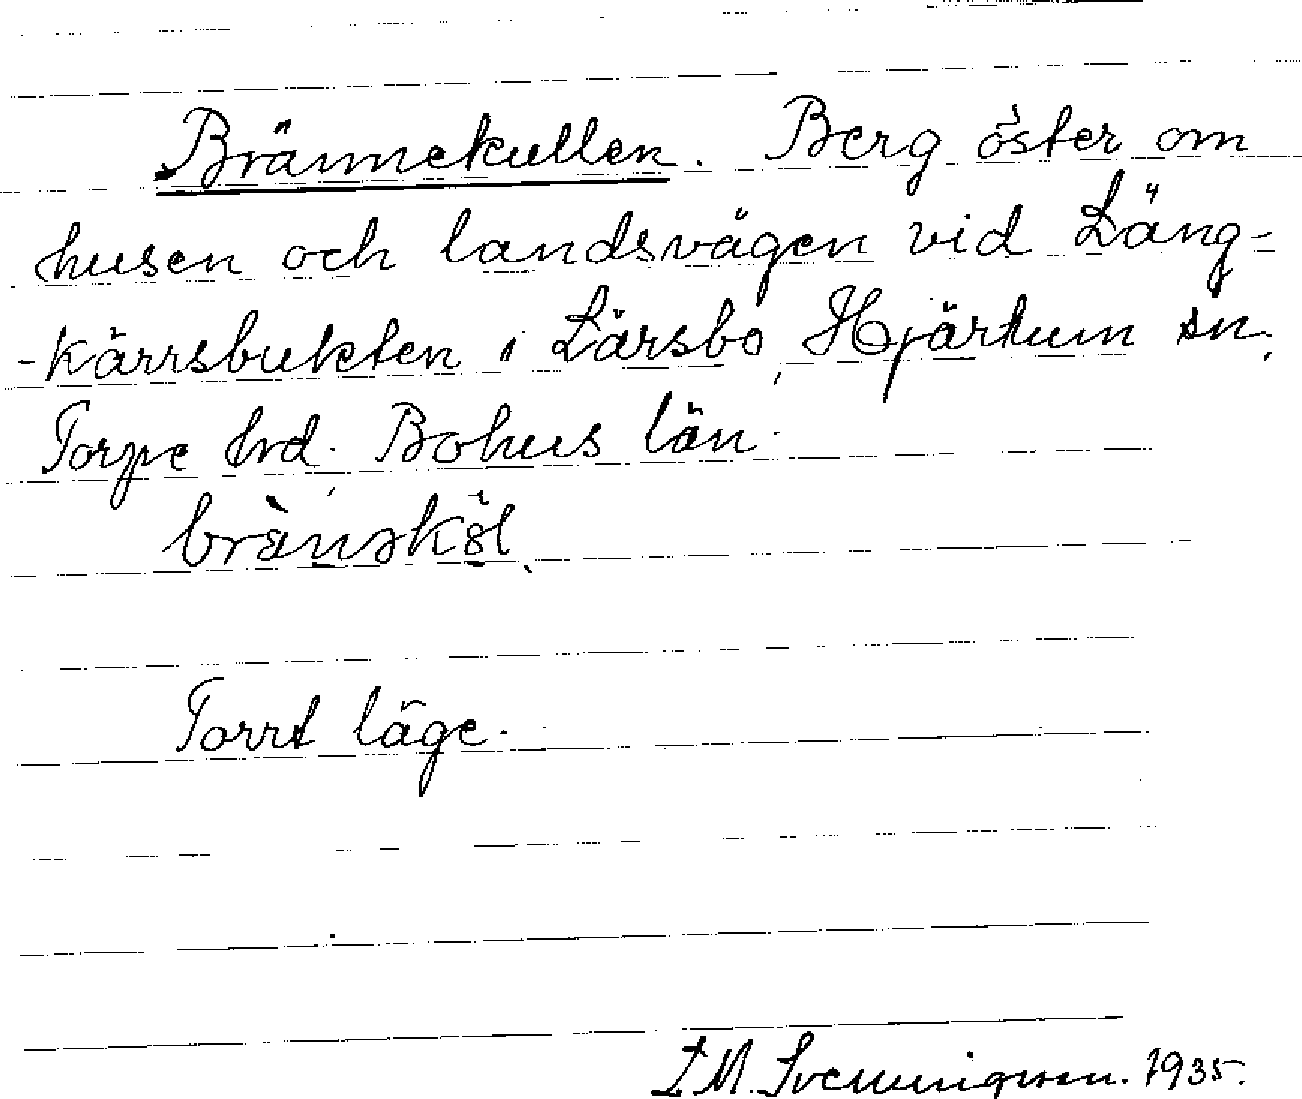 Brännekullen. Berg öster om
husen och landsvägen vid Läng-
-kärrsbukten i Lärsbo, Hjärtum sn.,
Torpe hrd. Bohus län.
Torrt läge.
I. M. Svenningsson. 1935.